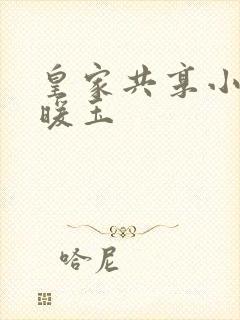 皇家共享小
暖玉
哈尼